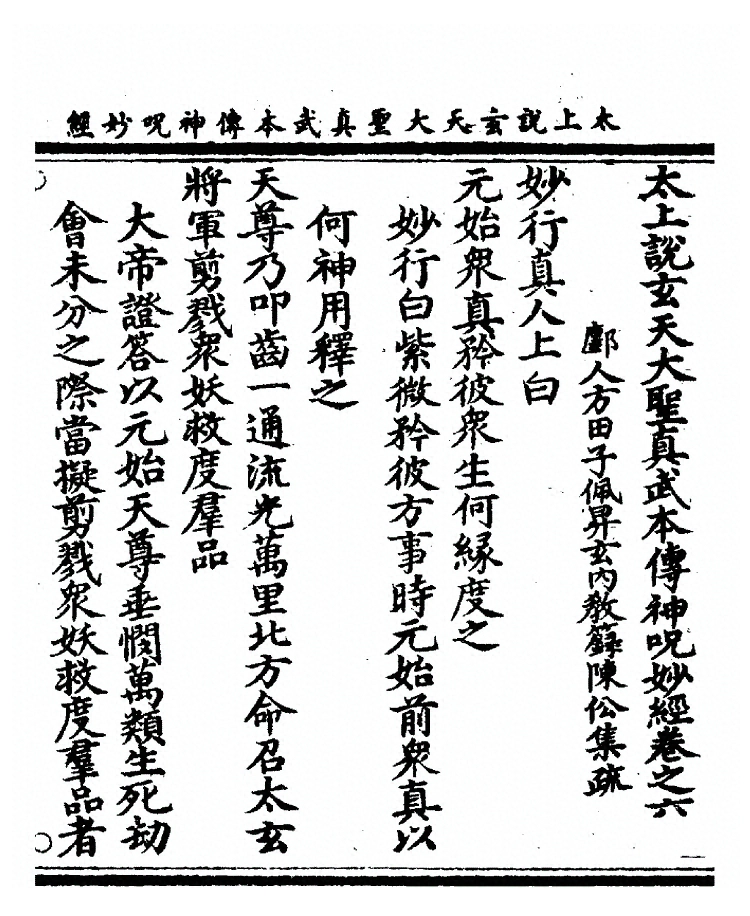 太上說玄天大聖真武本傳神呪妙經
太上說玄天大聖真武本傳神呪妙經卷之六
鄜人方田子佩昇玄內教籙陳伀集疏
妙行真人上曰
元始眾真矜彼眾生何緣度之
妙行白紫微矜彼方事時元始前眾真以
何神用釋之
天尊乃叩齒一通流光萬里北方命召太玄
將軍剪戮眾妖救度羣品
大帝證答以元始天尊垂憫萬類生死劫
會未分之際當擬剪戮眾妖救度羣品者